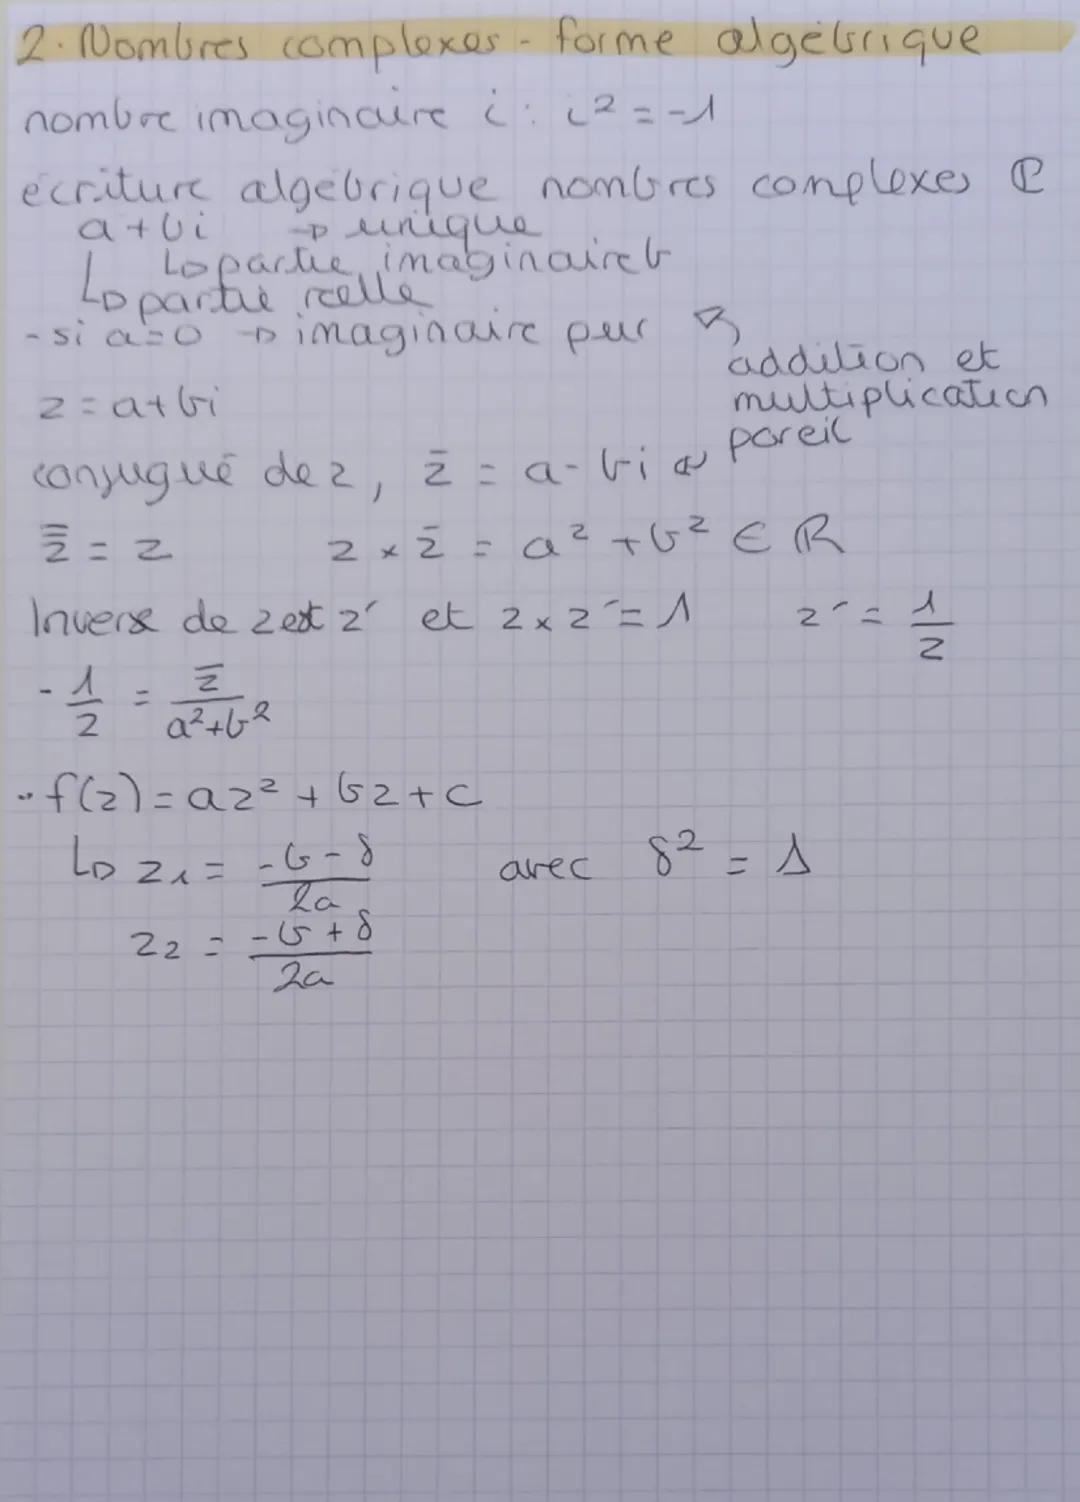 2. Nombres complexes - forme algébrique
nombre imaginaire i : i² = -1
écriture algébrique nombres complexes ℂ
a + bi → unique
↳ partie imaginaire b
↳ partie réelle
- si a = 0 → imaginaire pur
addition et
multiplication
pareil
z = a + bi
conjugué de z, z̄ = a - bi
z̿ = z z × z̄ = a² + b² ∈ ℝ
Inverse de z est z' et z × z' = 1 z' = 1/z
- 1/z = z̄/(a² + b²)
- f(z) = az² + bz + c
↳ z₁ = (-b - δ)/2a avec δ² = Δ
z₂ = (-b + δ)/2a